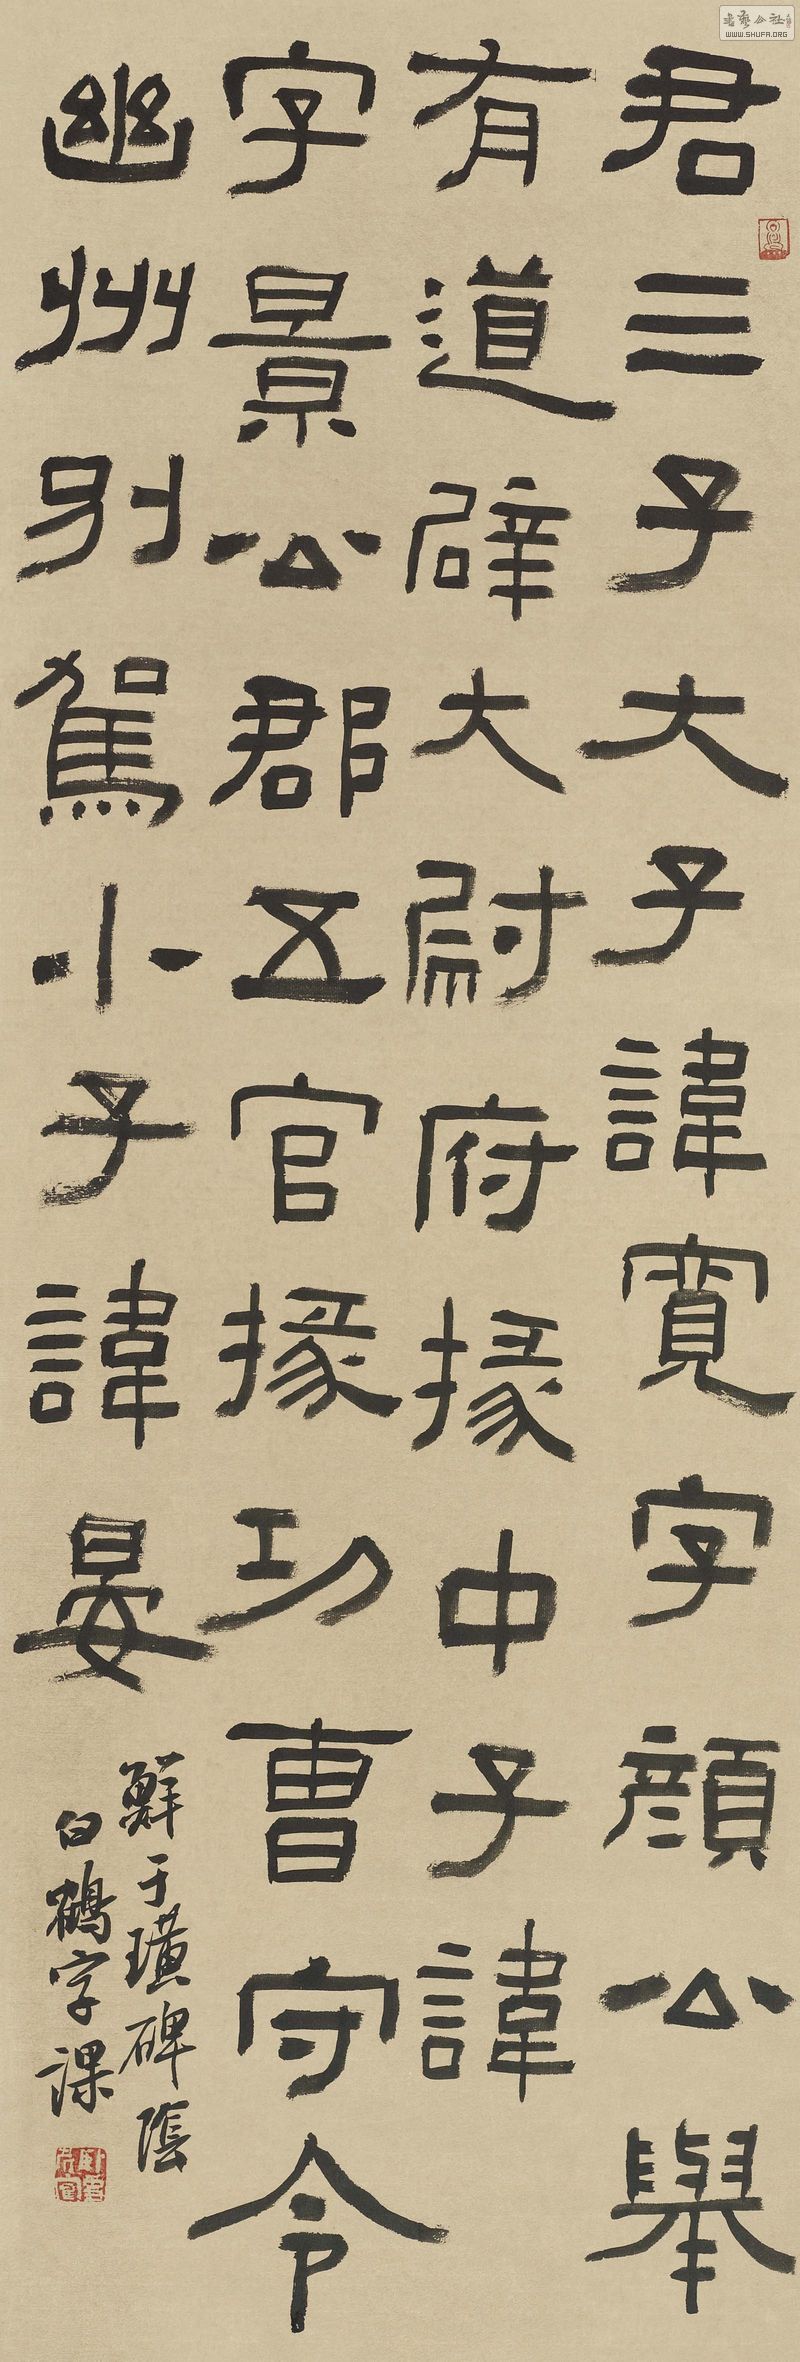 君三子大子諱寬字顏公舉
有道辟大尉府掾中子諱
字景公郡五官掾功曹守令
幽州別駕小子諱晏
鮮于璜碑陰
白鶴字課
書藝公社
WWW.SHUFA.ORG